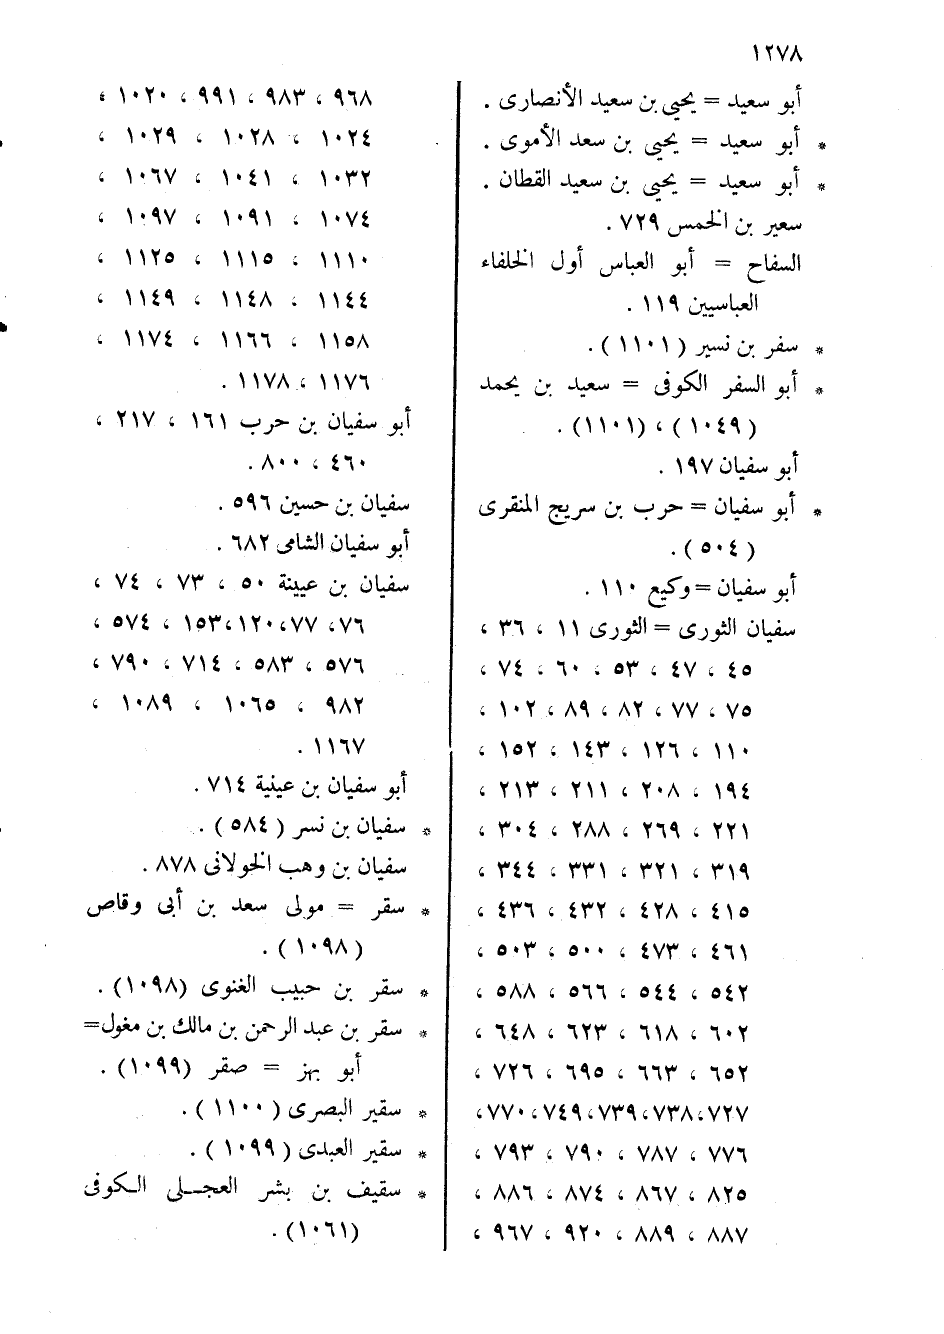 ١٢٧٨
أبو سعيد = يحيى بن سعيد الأنصارى .
* أبو سعيد = يحيى بن سعد الأموى .
* أبو سعيد = يحيى بن سعيد القطان .
سعير بن الخمس ٧٢٩ .
السفاح = أبو العباس أول الخلفاء
العباسيين ١١٩ .
* سفر بن نسير ( ١١٠١ ) .
* أبو السفر الكوفى = سعيد بن يحمد
( ١٠٤٩ ) ، (١١٠١) .
أبو سفيان ١٩٧ .
* أبو سفيان = حرب بن سريج المنقرى
( ٥٠٤ ) .
أبو سفيان = وكيع ١١٠ .
سفيان الثورى = الثورى ١١ ، ٣٦ ،
٤٥ ، ٤٧ ، ٥٣ ، ٦٠ ، ٧٤ ،
٧٥ ، ٧٧ ، ٨٢ ، ٨٩ ، ١٠٢ ،
١١٠ ، ١٢٦ ، ١٤٣ ، ١٥٢ ،
١٩٤ ، ٢٠٨ ، ٢١١ ، ٢١٣ ،
٢٢١ ، ٢٦٩ ، ٢٨٨ ، ٣٠٤ ،
٣١٩ ، ٣٢١ ، ٣٣١ ، ٣٤٤ ،
٤١٥ ، ٤٢٨ ، ٤٣٢ ، ٤٣٦ ،
٤٦١ ، ٤٧٣ ، ٥٠٠ ، ٥٠٣ ،
٥٤٢ ، ٥٤٤ ، ٥٦٦ ، ٥٨٨ ،
٦٠٢ ، ٦١٨ ، ٦٢٣ ، ٦٤٨ ،
٦٥٢ ، ٦٦٣ ، ٦٩٥ ، ٧٢٦ ،
٧٢٧ ، ٧٣٨ ، ٧٣٩ ، ٧٤٩ ، ٧٧٠ ،
٧٧٦ ، ٧٨٧ ، ٧٩٠ ، ٧٩٣ ،
٨٢٥ ، ٨٦٧ ، ٨٧٤ ، ٨٨٦ ،
٨٨٧ ، ٨٨٩ ، ٩٢٠ ، ٩٦٧ ،
٩٦٨ ، ٩٨٣ ، ٩٩١ ، ١٠٢٠ ،
١٠٢٤ ، ١٠٢٨ ، ١٠٢٩ ،
١٠٣٢ ، ١٠٤١ ، ١٠٦٧ ،
١٠٧٤ ، ١٠٩١ ، ١٠٩٧ ،
١١١٠ ، ١١١٥ ، ١١٢٥ ،
١١٤٤ ، ١١٤٨ ، ١١٤٩ ،
١١٥٨ ، ١١٦٦ ، ١١٧٤ ،
١١٧٦ ، ١١٧٨ .
أبو سفيان بن حرب ١٦١ ، ٢١٧ ،
٤٦٠ ، ٨٠٠ .
سفيان بن حسين ٥٩٦ .
أبو سفيان الشامى ٦٨٢ .
سفيان بن عيينة ٥٠ ، ٧٣ ، ٧٤ ،
٧٦ ، ٧٧ ، ١٢٠ ، ١٥٣ ، ٥٧٤ ،
٥٧٦ ، ٥٨٣ ، ٧١٤ ، ٧٩٠ ،
٩٨٢ ، ١٠٦٥ ، ١٠٨٩ ،
١١٦٧ .
أبو سفيان بن عينية ٧١٤ .
* سفيان بن نسر ( ٥٨٤ ) .
سفيان بن وهب الخولانى ٨٧٨ .
* سقر = مولى سعد بن أبى وقاص
( ١٠٩٨ ) .
* سقر بن حبيب الغنوى (١٠٩٨) .
* سقر بن عبد الرحمن بن مالك بن مغول=
أبو بهز = صقر (١٠٩٩) .
* سقير البصرى ( ١١٠٠ ) .
* سقير العبدى ( ١٠٩٩ ) .
* سقيف بن بشر العجلى الكوفى
(١٠٦١) .